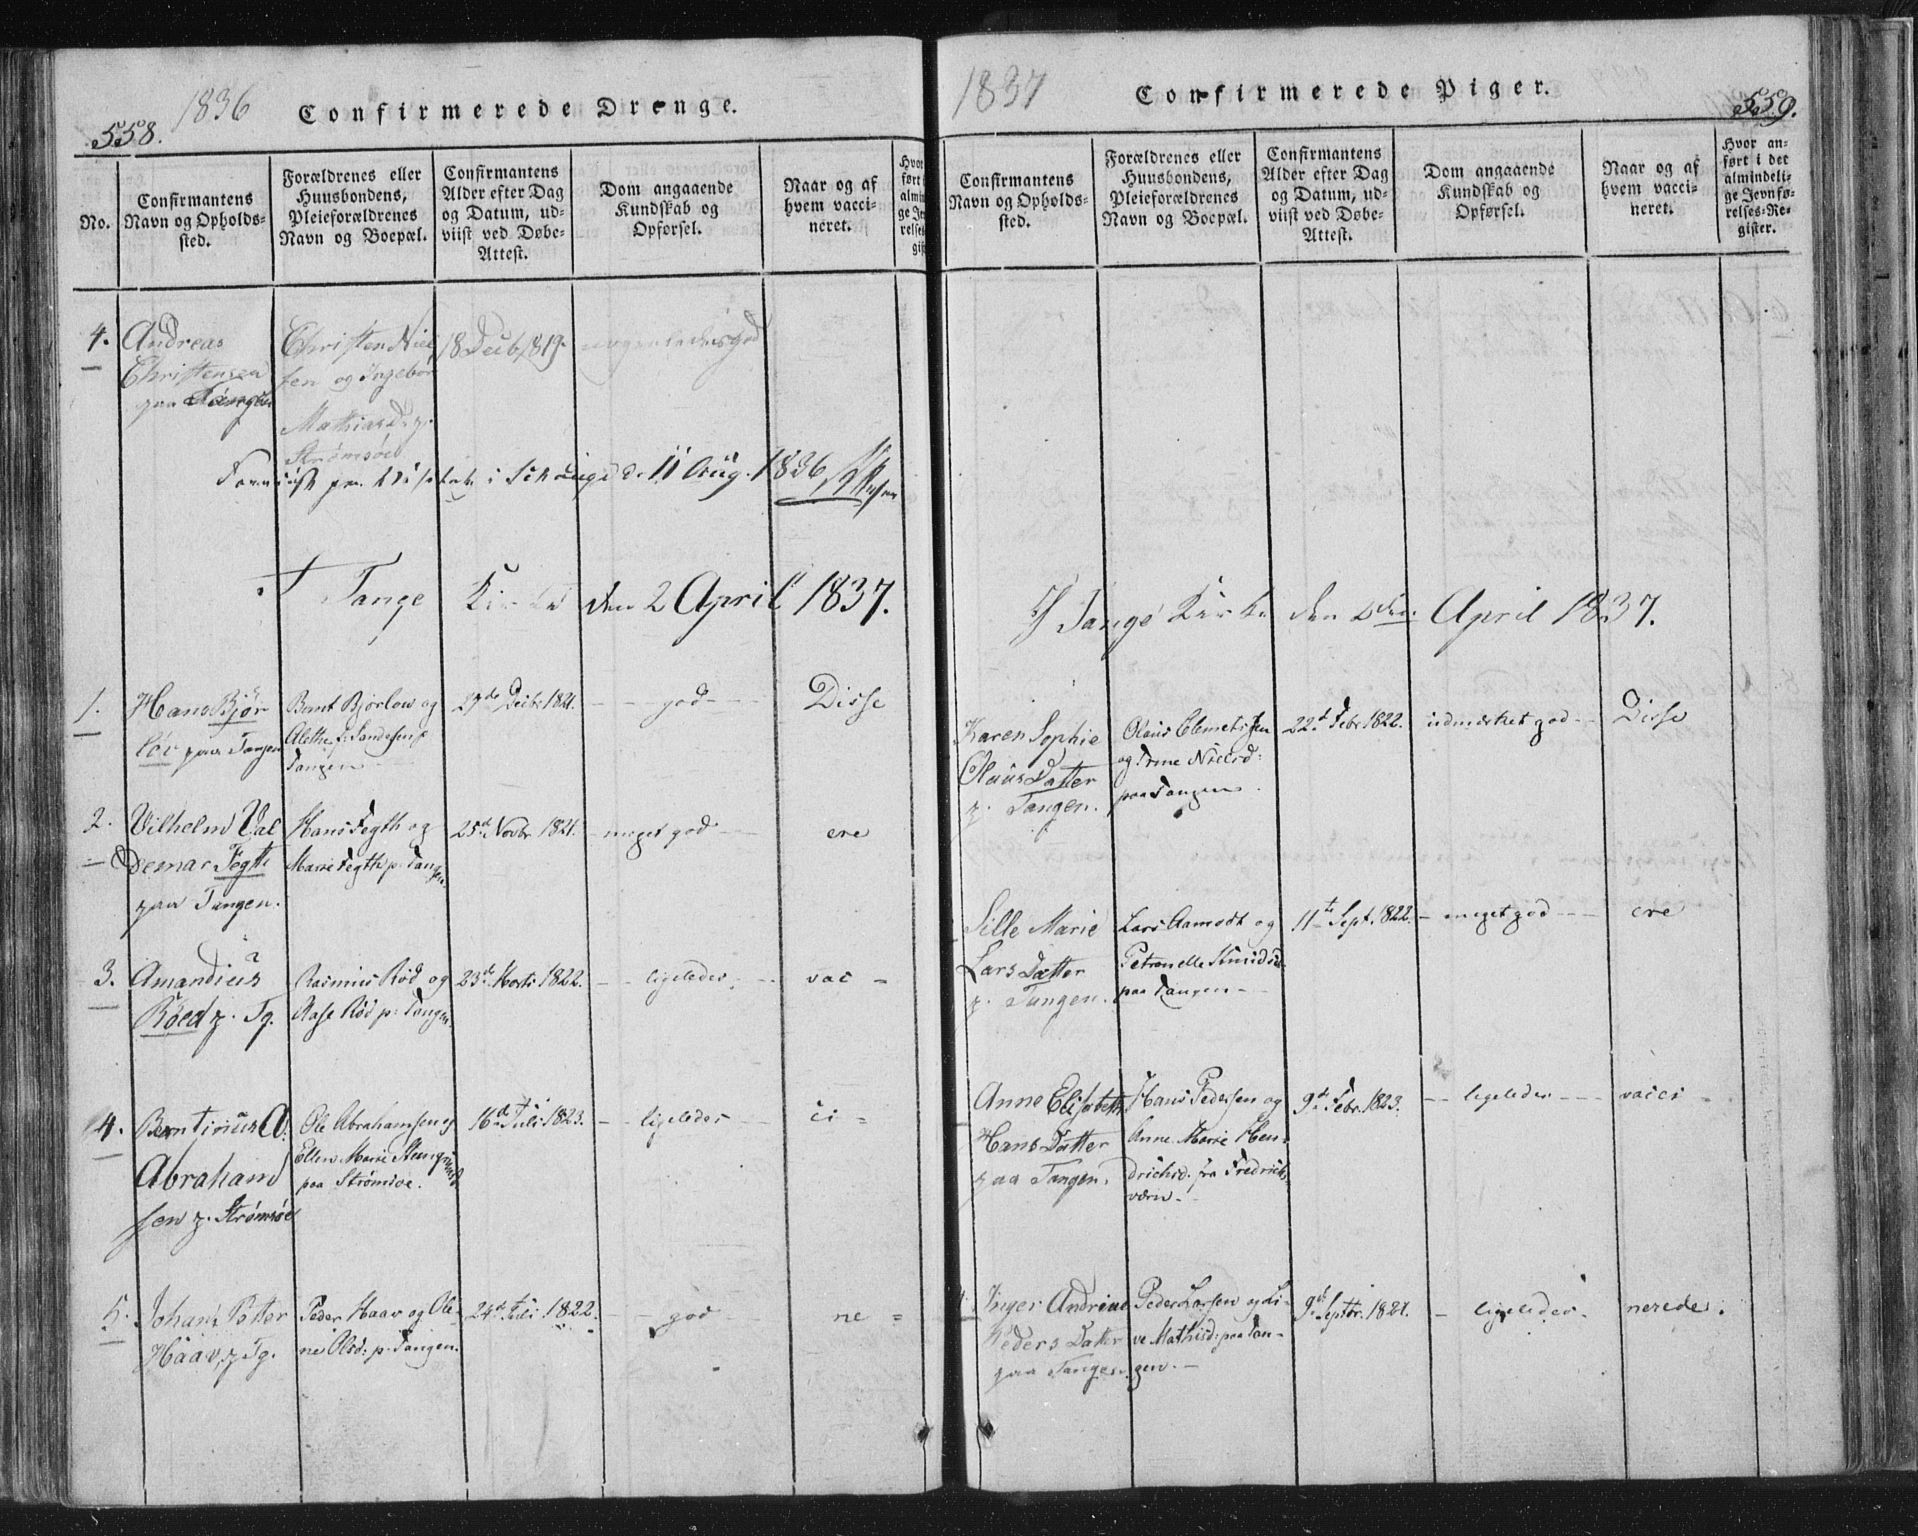 558.
1836
Confirmerede Drenge.
No.
Confirmantens
Navn og Opholds-
sted.
Forældrenes eller
Huusbondens,
Pleieforældrenes
Navn og Boepæl.
Confirmantens
Alder efter Dag
og Datum, ud-
viist ved Døbe-
Attest.
Dom angaaende
Kundskab og
Opførsel.
Naar og af
hvem vacci-
neret.
4.
Andreas
Christensen
paa
Christen Niel
sen og Ingebor
Mathiasd. p.
Strømsøe
18 Decb. 1819.
nogenledes god
11 Aug. 1836
I Tange Kirke den 2 April 1837.
1.
Hans Bjør
löv paa Tangen
Bernt Bjørlow og
Alethe
Tangen
29de Decbr. 1821.
- - god - -
Disse
2.
Vilhelm Val
demar Fegth
paa Tangen.
Hans Fegth og
Marie Fegth p. Tangen
25de Novbr. 1821.
- meget god -
ere
3.
Amandius
Röed p. Tg.
Rasmus Röd og
Aase Röd p: Tangen.
23de Marts 1822.
- - ligeledes - -
vac -
4.
Berntinus A.
Abraham
sen p. Strømsöe
Ole Abrahamsen og
Ellen Marie
paa Strømsöe.
16de Juli 1823.
- ligeledes -
ci -
5.
Johan Petter
Haav, p Tg.
Peder Haav og Ole-
ne Olsd: p. Tangen.
24de Juli 1822.
- - god
ne -
1837
Confirmerede Piger.
559.
Confirmantens
Navn og Opholds-
sted.
Forældrenes eller
Huusbondens,
Pleieforældrenes
Navn og Boepæl.
Confirmantens
Alder efter Dag
og Datum, ud-
viist ved Døbe-
Attest.
Dom angaaende
Kundskab og
Opførsel.
Naar og af
hvem vacci-
neret.
Hvor an-
ført i det
almindeli-
ge Jevnfø-
relses-Re-
gister.
I Tange Kirke den 2den April 1837.
Karen Sophie
Olaus Datter
p. Tangen.
Olaus Clemetssen
og Trine Nielsd:
paa Tangen.
22de Febr. 1822.
udmærket god - -
Disse
Sille Marie
Lars Datter
p. Tangen.
Lars Aamodt og
Petronelle Knudsd
paa Tangen -
11te Sept. 1822.
- meget god - - -
ere
Anne Elisabeth
Hans Datter
paa Tangen.
Hans Pedersen og
Anne Marie Hen-
drichsd. fra Fredrichs
værn -
9de Febr. 1823.
- - ligeledes - - -
vacci -
Inger Andrine
Peders Datter
paa Tangen
Peder Larsen og Li-
ve Mathisd: paa Tan-
gen. -
9de Septbr. 1821.
- ligeledes -
nerede.